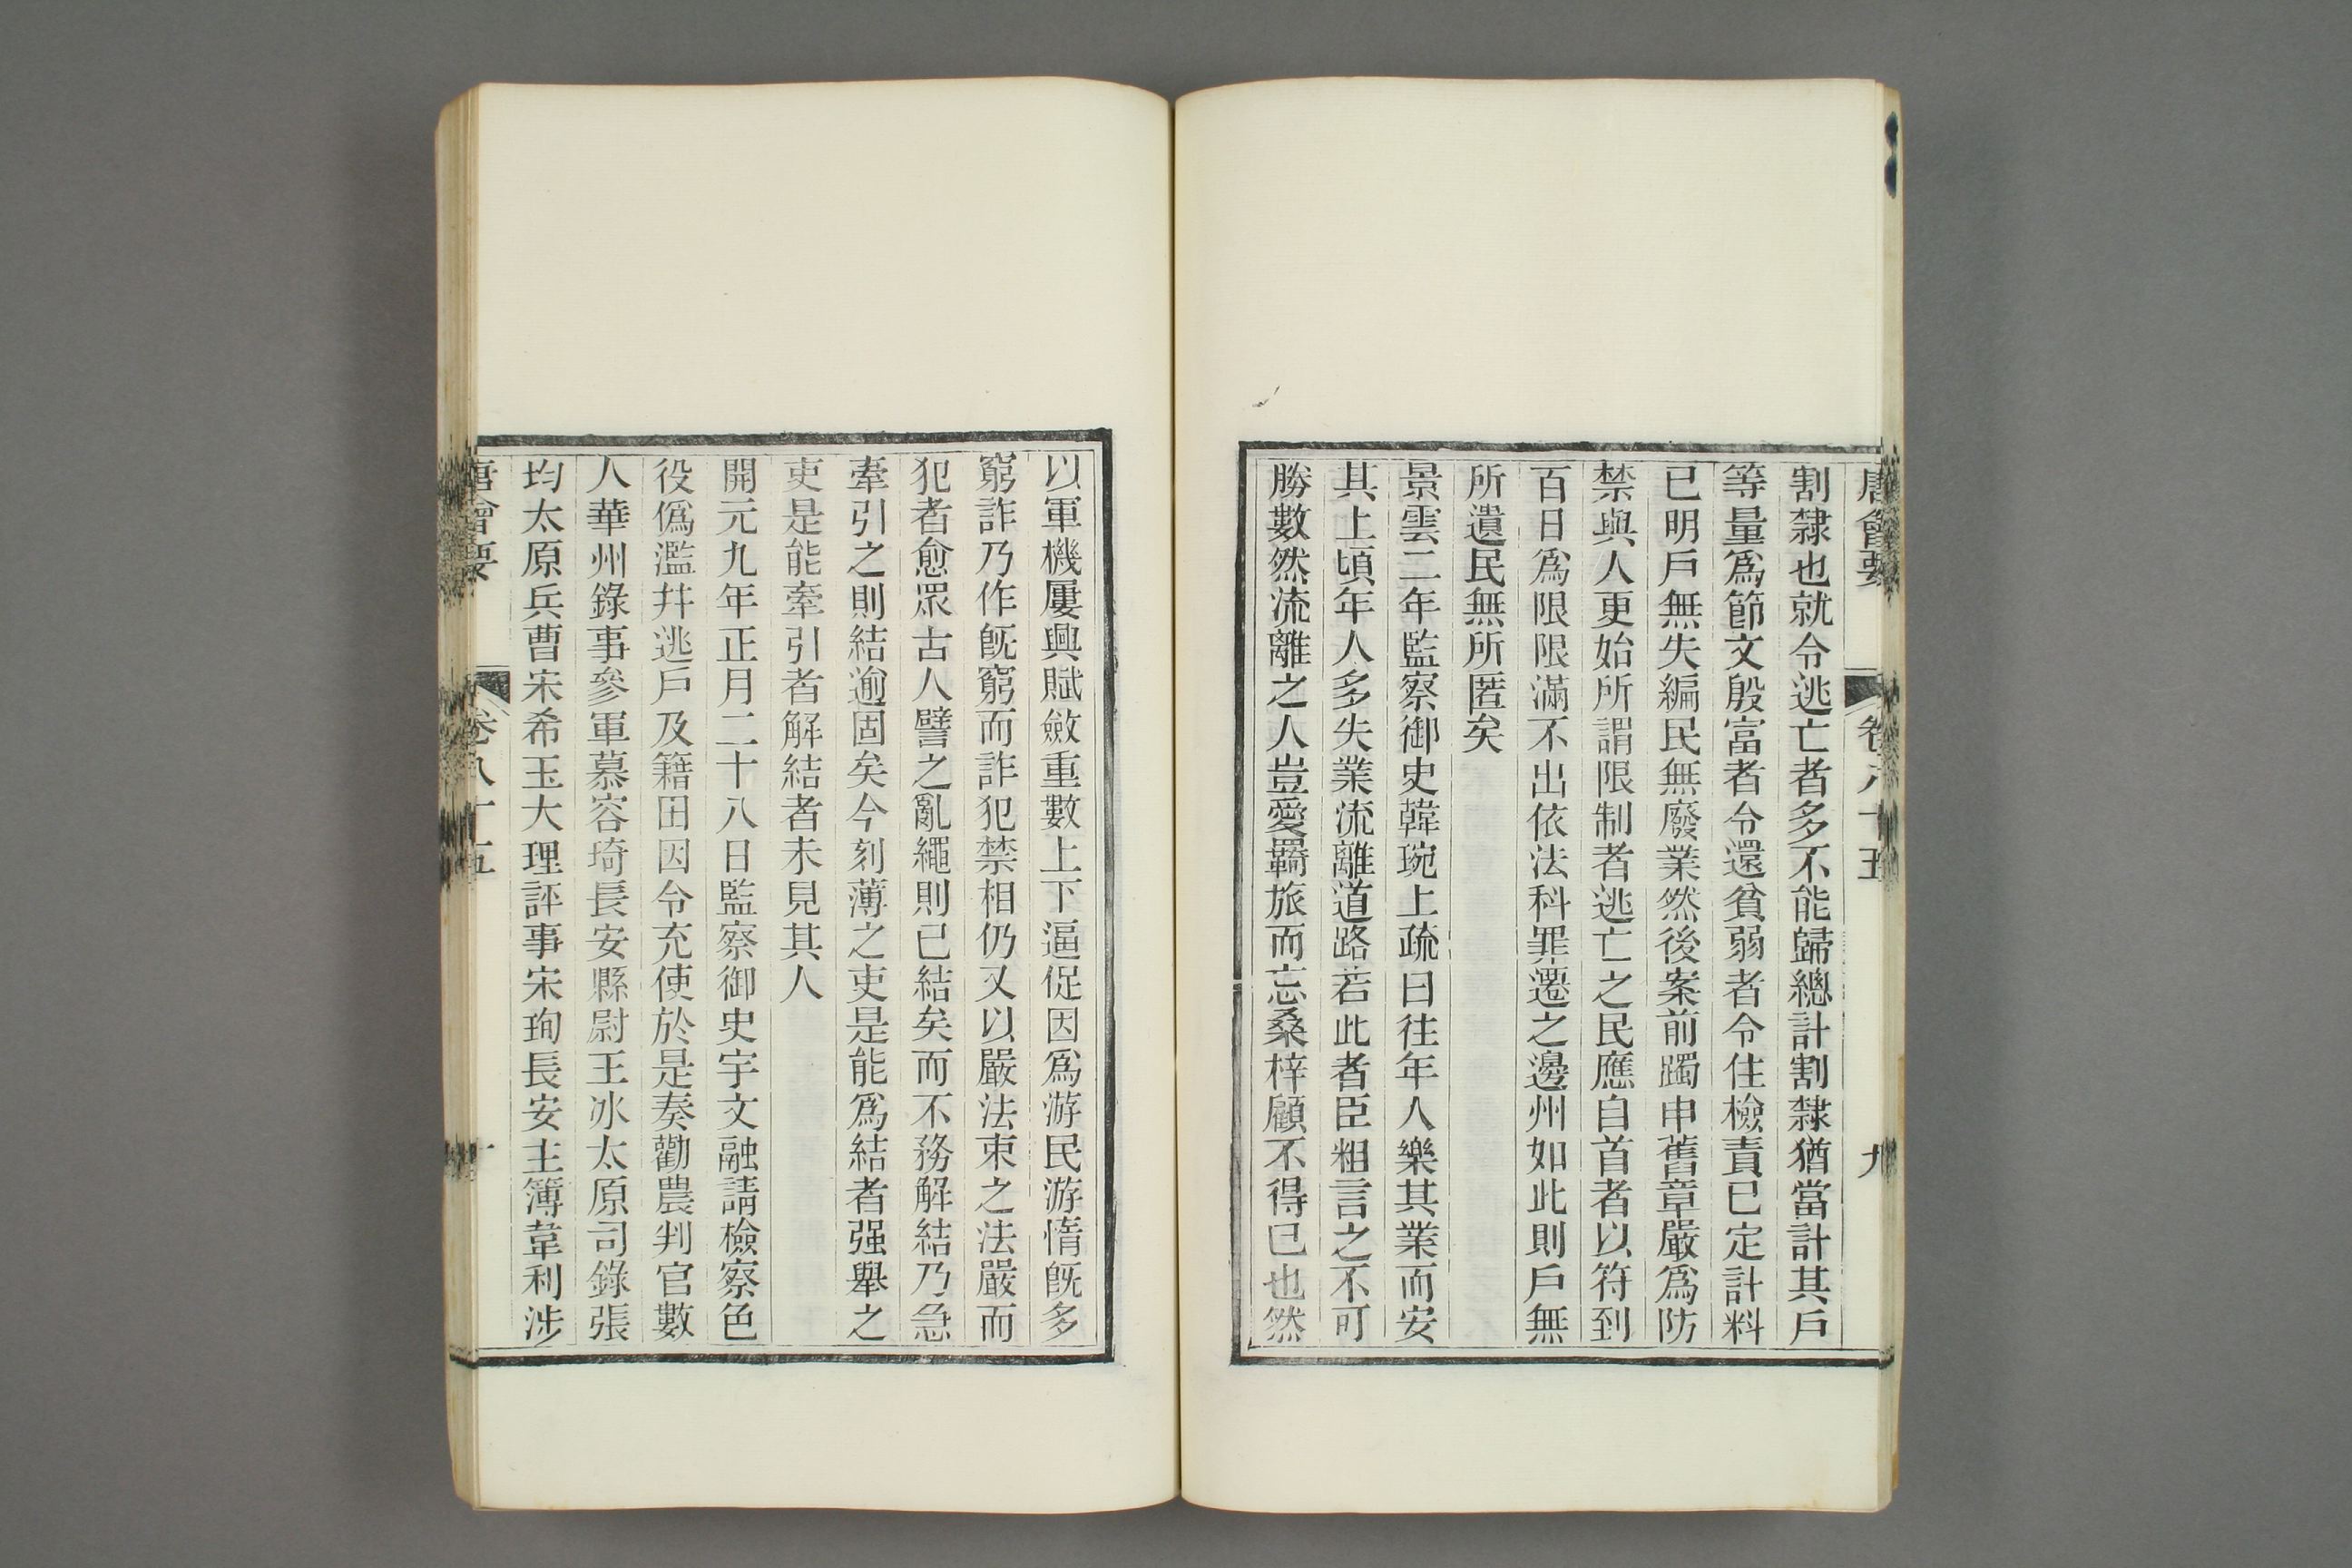 唐會要 卷八十五 九
割隸也就令逃亡者多不能歸總計割隸猶當計其戶
等量爲節文殷富者令還貧弱者令住檢責已定計料
已明戶無失編民無廢業然後案前躅申舊章嚴爲防
禁與人更始所謂限制者逃亡之民應自首者以符到
百日爲限限滿不出依法科罪遷之邊州如此則戶無
所遺民無所匿矣
景雲二年監察御史韓琬上疏曰往年人樂其業而安
其上頃年人多失業流離道路若此者臣粗言之不可
勝數然流離之人豈愛羈旅而忘桑梓顧不得已也然
以軍機屢興賦斂重數上下逼促因爲游民游惰旣多
窮詐乃作旣窮而詐犯禁相仍又以嚴法束之法嚴而
犯者愈眾古人譬之亂繩則已結矣而不務解結乃急
牽引之則結逾固矣今刻薄之吏是能爲結者强舉之
吏是能牽引者解結者未見其人
開元九年正月二十八日監察御史宇文融請檢察色
役僞濫幷逃戶及籍田因令充使於是奏勸農判官數
人華州錄事參軍慕容琦長安縣尉王冰太原司錄張
均太原兵曹宋希玉大理評事宋珣長安主簿韋利涉
唐會要 卷八十五 十